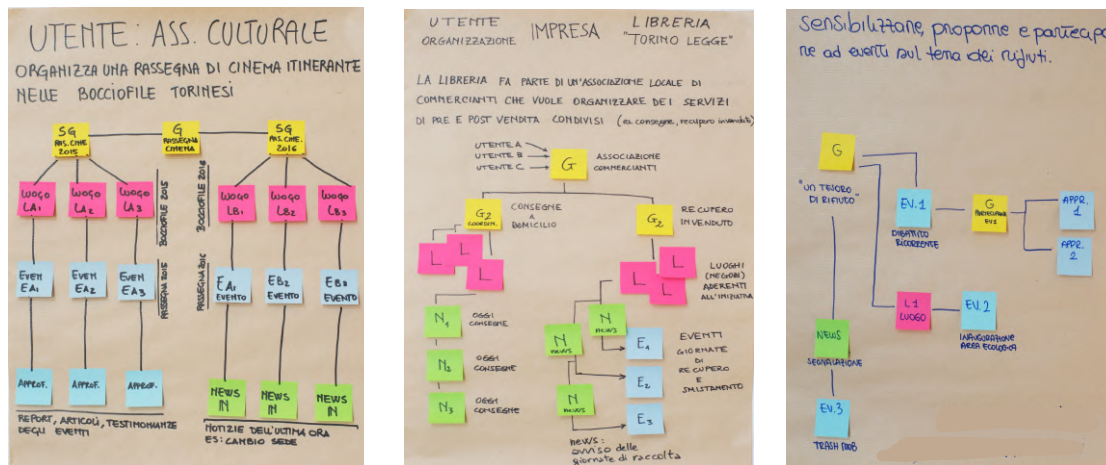 UTENTE: ASS. CULTURALE
ORGANIZZA UNA RASSEGNA DI CINEMA ITINERANTE
NELLE BOCCIOFILE TORINESI
SG
RAS. CINE.
2015
G
RASSEGNA
CINEMA
SG
RAS. CINE.
2016
LUOGO
LA1
LUOGO
LA2
LUOGO
LA3
BOCCIOFILE 2015
BOCCIOFILE 2016
LUOGO
LB1
LUOGO
LB2
LUOGO
LB3
EVEN
EA1
EVEN
EA2
EVEN
EA3
RASSEGNA 2015
RASSEGNA 2016
EA1
EVENTO
EB2
EVENTO
EB3
EVENTO
APPROF.
APPROF.
APPROF.
NEWS
IN
NEWS
IN
NEWS
IN
REPORT, ARTICOLI, TESTIMONIANZE
DEGLI EVENTI
NOTIZIE DELL'ULTIMA ORA
ES: CAMBIO SEDE
UTENTE IMPRESA LIBRERIA
ORGANIZZAZIONE "TORINO LEGGE"
LA LIBRERIA FA PARTE DI UN'ASSOCIAZIONE LOCALE DI
COMMERCIANTI CHE VUOLE ORGANIZZARE DEI SERVIZI
DI PRE E POST VENDITA CONDIVISI (es. consegne, recupero invenduti)
UTENTE A
UTENTE B
UTENTE C
G
ASSOCIAZIONE
COMMERCIANTI
G2
COORDIN.
CONSEGNE
A
DOMICILIO
G2
RECUPERO
INVENDUTO
L
L
L
L
L
L
LUOGHI
(NEGOZI)
ADERENTI
ALL'INIZIATIVA
N1
OGGI
CONSEGNE
N2
OGGI
CONSEGNE
N3
OGGI
CONSEGNE
N
news
N
news
N
news
E1
E2
E3
EVENTI
GIORNATE
DI
RECUPERO
E
SMISTAMENTO
news:
avviso delle
giornate di raccolta
sensibilizzare, proporre e partecipa
re ad eventi sul tema dei rifiuti.
G
"UN TESORO
DI RIFIUTO"
EV.1
DIBATTITO
RICORRENTE
G
PARTECIPANTI
EV1
APPR.
1
APPR.
2
L1
LUOGO
EV.2
INAUGURAZIONE
AREA ECOLOGICA
NEWS
SEGNALAZIONE
EV.3
TRASH MOB